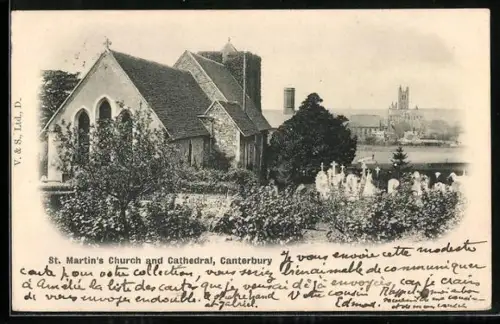 V. & S., Ltd., D.
St. Martin's Church and Cathedral, Canterbury
Je vous envoie cette modeste
carte pour votre collection, vous seriez bien aimable de communiquer
à Amélie la liste des cartes que je vous ai déjà envoyés, car je crains
de vous envoyer en double. Votre cousin
et Gabriel. Edmond.